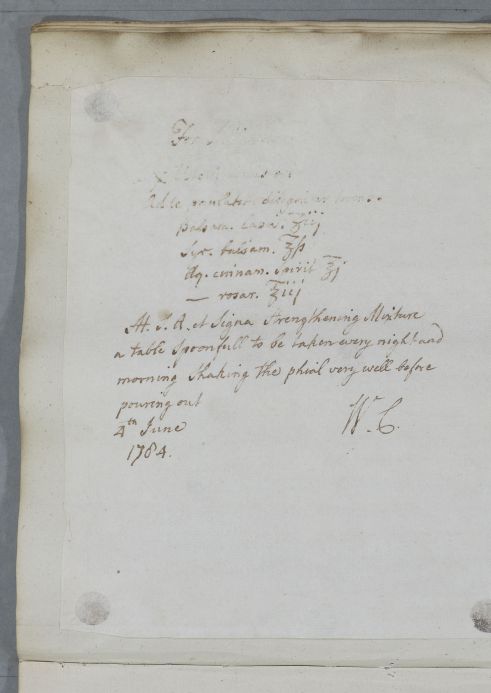 For
Adde paulatim
balsam. ʒij
Syr. balsam. ℥ß
Aq. cinnam. spirit ℥j
— rosar. ℥iij
M. S. A. et Signa Strengthening Mixture
a table Spoonfull to be taken every night and
morning Shaking the phial very well before
pouring out
4th June
1784.
W. C.